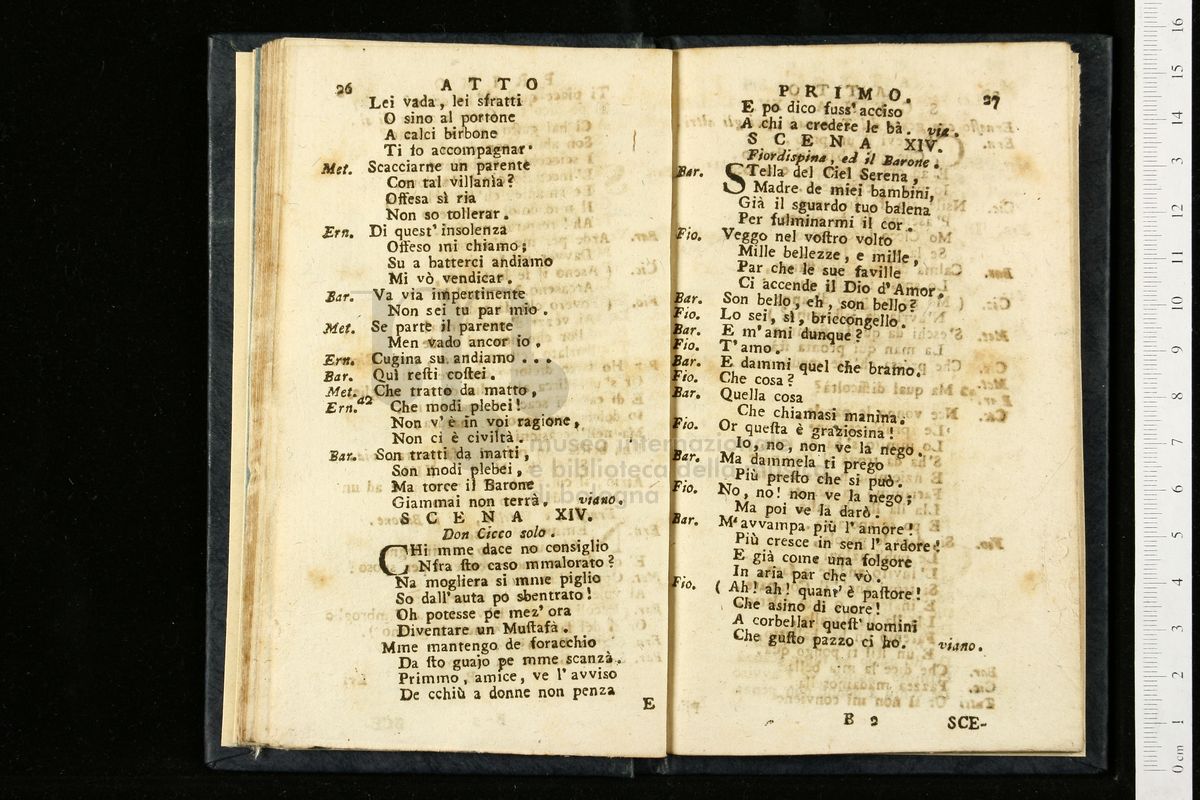 26 ATTO
Lei vada, lei sfratti
O sino al portone
A calci birbone
Ti io accompagnar.
Met. Scacciarne un parente
Con tal villania?
Offesa sì ria
Non so tollerar.
Ern. Di quest' insolenza
Offeso mi chiamo;
Su a batterci andiamo
Mi vò vendicar.
Bar. Va via impertinente
Non sei tu par mio.
Met. Se parte il parente
Men vado ancor io.
Ern. Cugina su andiamo ...
Bar. Quì resti costei.
Met. Che tratto da matto,
Ern. a2 Che modi plebei!
Non v'è in voi ragione,
Non ci è civiltà.
Bar. Son tratti da matti,
Son modi plebei,
Ma torce il Barone
Giammai non terrà. viano.
SCENA XIV.
Don Cicco solo.
CHi mme dace no consiglio
Nfra sto caso mmalorato?
Na mogliera si mme piglio
So dall'auta po sbentrato!
Oh potesse pe mez' ora
Diventare un Mustafà.
Mme mantengo de foracchio
Da sto guajo pe mme scanzà.
Primmo, amice, ve l'avviso
De cchiù a donne non penza
E
PRIMO. 27
E po dico fuss' acciso
A chi a credere le bà. via.
SCENA XIV.
Fiordispina, ed il Barone.
Bar. STella del Ciel Serena,
Madre de miei bambini,
Già il sguardo tuo balena
Per fulminarmi il cor.
Fio. Veggo nel vostro volto
Mille bellezze, e mille,
Par che le sue faville
Ci accende il Dio d'Amor.
Bar. Son bello, eh, son bello?
Fio. Lo sei, sì, briccongello.
Bar. E m'ami dunque?
Fio. T'amo.
Bar. E dammi quel che bramo.
Fio. Che cosa?
Bar. Quella cosa
Che chiamasi manina.
Fio. Or questa è graziosina!
Io, no, non ve la nego.
Bar. Ma dammela ti prego
Più presto che si può.
Fio. No, no! non ve la nego;
Ma poi ve la darò.
Bar. M'avvampa più l'amore!
Più cresce in sen l'ardore!
E già come una folgore
In aria par che vò.
Fio. (Ah! ah! quant' è pastore!
Che asino di cuore!
A corbellar quest' uomini
Che gusto pazzo ci ho. viano.
B 2 SCE-
museo internazionale
e biblioteca della musica
di bologna